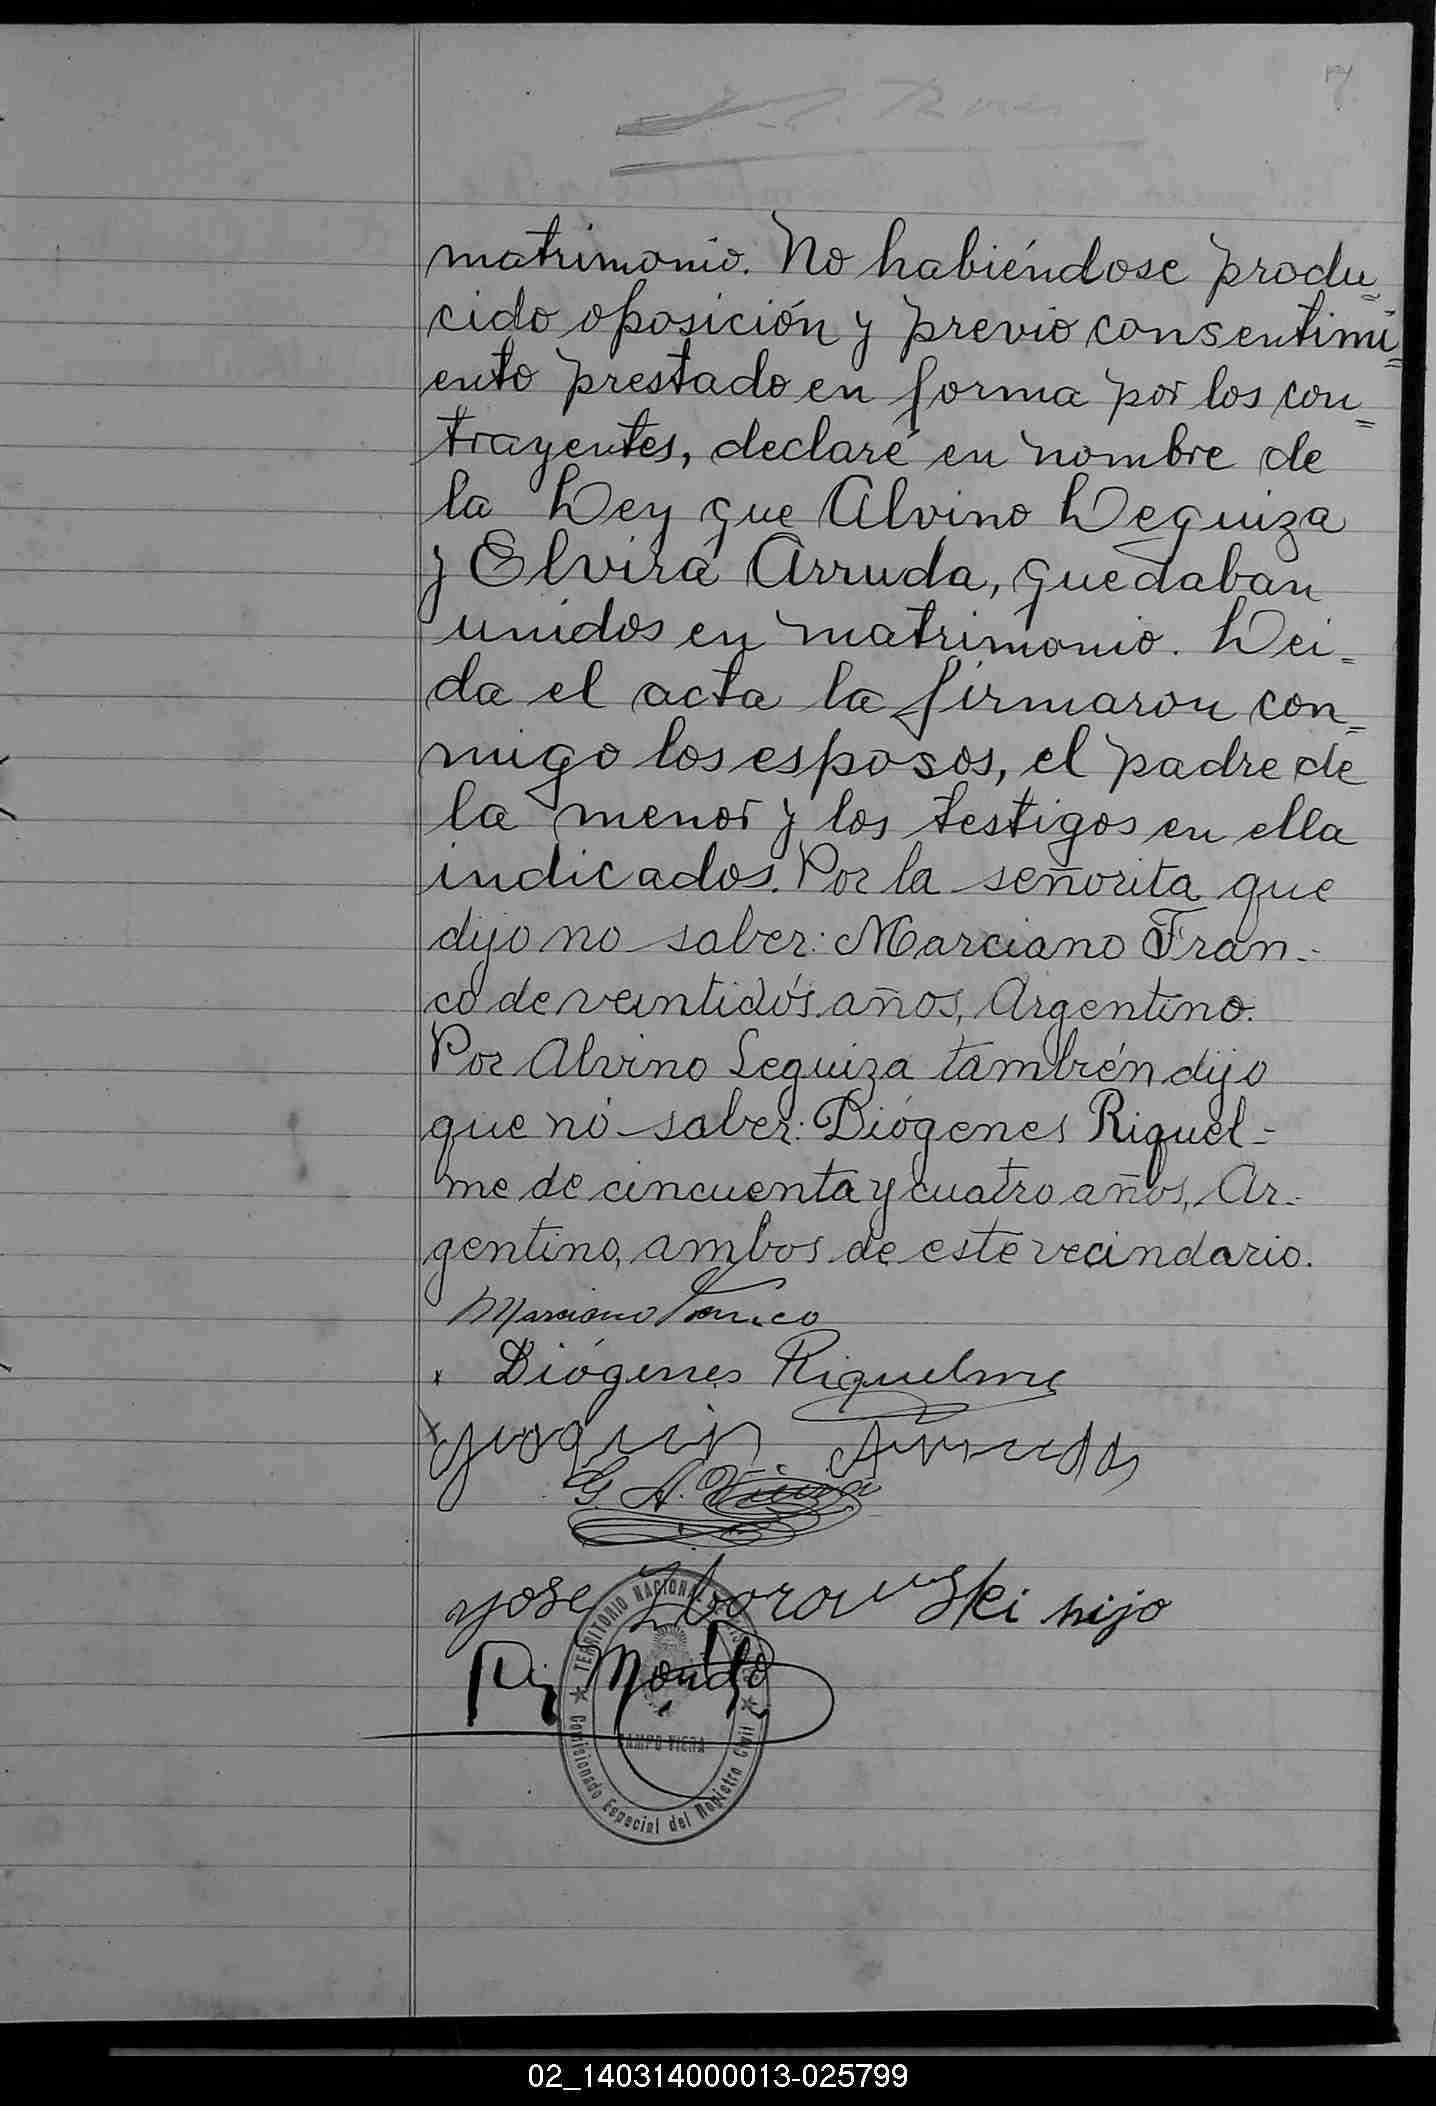 matrimonio. No habiéndose produ=
cido oposición y previo consentimi=
ento prestado en forma por los con=
trayentes, declaré en nombre de
la Ley que Alvino Leguiza
y Elvira Arruda, quedaban
unidos en matrimonio. Lei=
da el acta la firmaron con=
migo los esposos, el padre de
la menor y los testigos en ella
indicados. Por la señorita que
dijo no saber: Marciano Fran=
co de veintidós años, Argentino.
Por Alvino Leguiza también dijo
que no saber: Diógenes Riquel=
me de cincuenta y cuatro años, Ar=
gentino, ambos de este vecindario.
Marciano Franco
x Diógenes Riquelme
x Joaquin Arruda
G. A.
Jose Zborowski hijo
TERRITORIO NACIONAL DE MISIONES
CAMPO VIERA
Comisionado Especial del Registro Civil
02_140314000013-025799